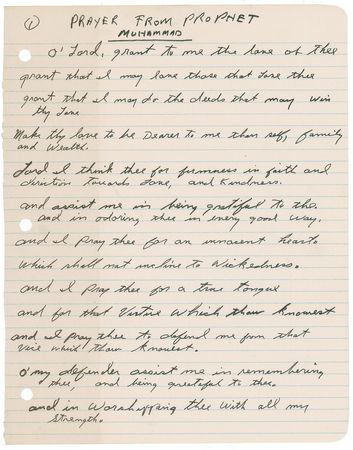 ① PRAYER FROM PROPHET
MUHAMMAD
O' Lord, grant to me the love of thee
grant that I may love those that love thee
grant that I may do the deeds that may win
thy Love
Make thy love to be Dearer to me than self, family
and Wealth.
Lord I think thee for firmness in faith and
direction towards Love, and Kindness.
and assist me in being grateful to the.
and in adoring thee in every good way.
and I pray thee for an innocent heart.
Which shall not incline to Wickedness.
and I pray thee for a true tongue
and for that Virtue Which thow knowest
and I pray thee to defend me from that
Vice Which thow knowest.
O' my defender assist me in remembering
thee, and being greateful to thee.
and in Worshipping thee With all my
Strength.